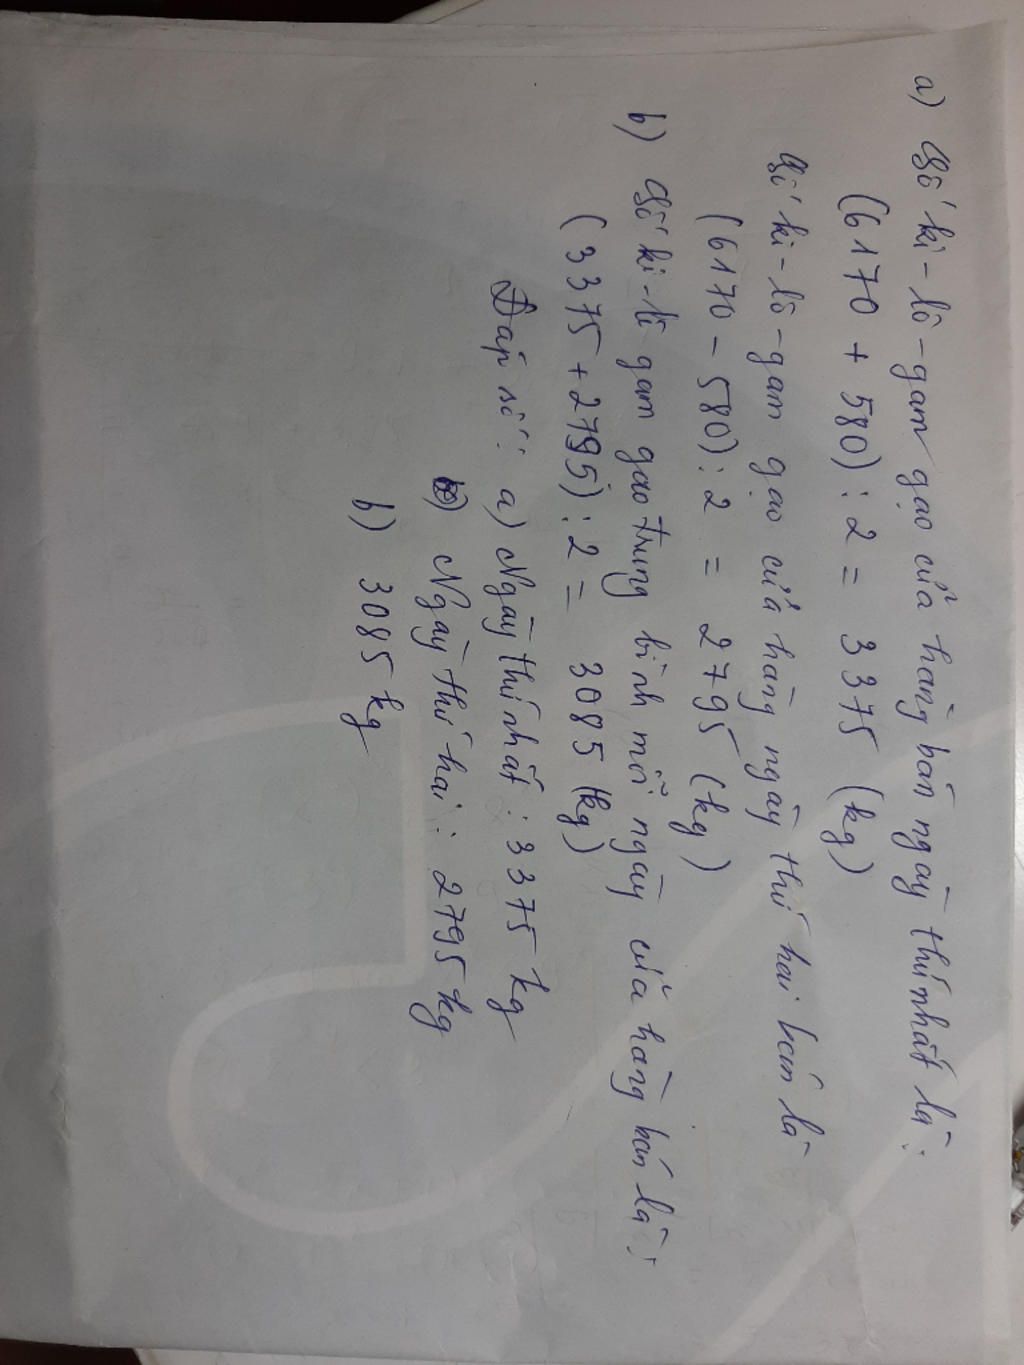 a) Số ki-lô-gam gạo cửa hàng bán ngày thứ nhất là:
(6170 + 580) : 2 = 3375 (kg)
Số ki-lô-gam gạo cửa hàng ngày thứ hai bán là
(6170 - 580) : 2 = 2795 (kg)
b) Số ki-lô gam gạo trung bình mỗi ngày cửa hàng bán là:
(3375 + 2795) : 2 = 3085 (kg)
Đáp số: a) Ngày thứ nhất : 3375 kg
Ngày thứ hai : 2795 kg
b) 3085 kg